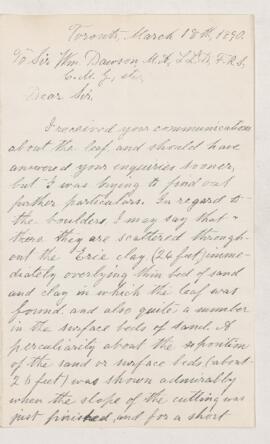 Toronto, March 18th, 1890.
To Sir Wm. Dawson, M.A., L.L.D., F.R.S.,
C.M.G., etc.,
Dear Sir,
I received your communication
about the leaf, and should have
answered your enquiries sooner,
but I was trying to find out
further particulars. In regard to
the boulders, I may say that
there they are scattered through-
out the Erie clay, (26 feet) imme-
diately overlying thin bed of sand
and clay in which the leaf was
found, and also quite a number
in the surface beds of sand. A
perculiarity about the
of the sand or surface beds (about
feet) was shown admirably
when the slope of the cutting was
just finished, and for a short